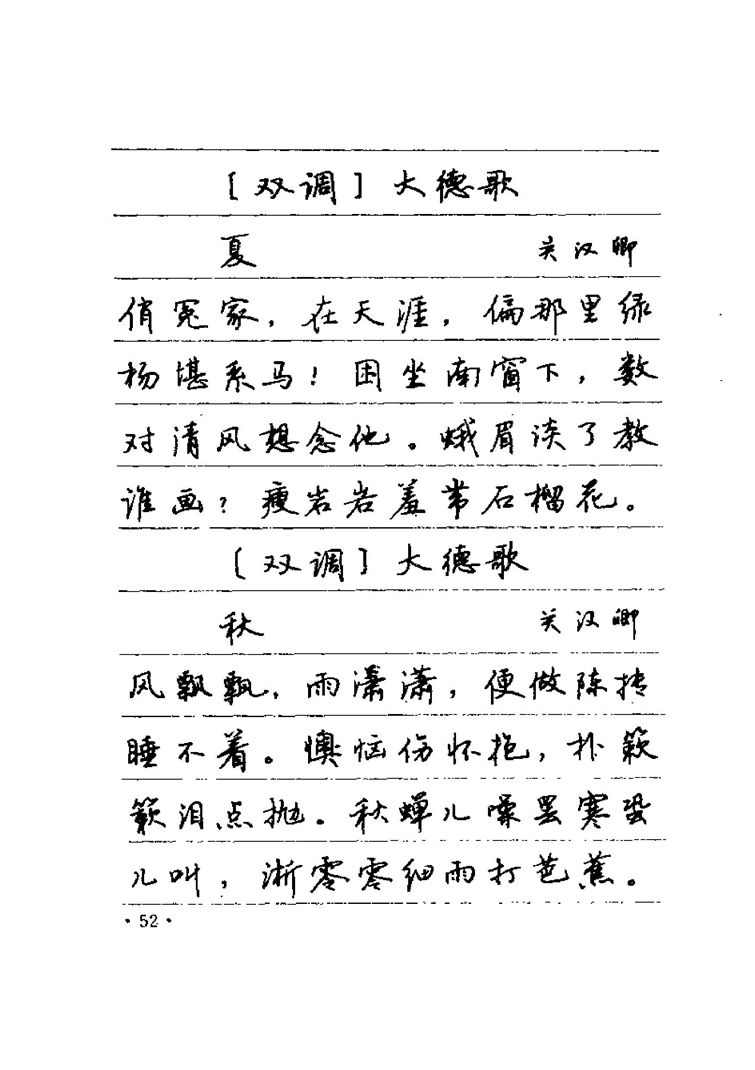 ［双调］大德歌
夏 关汉卿
俏冤家，在天涯，偏那里绿
杨堪系马！困坐南窗下，数
对清风想念他。蛾眉淡了教
谁画？瘦岩岩羞带石榴花。
［双调］大德歌
秋 关汉卿
风飘飘，雨潇潇，便做陈抟
睡不着。懊恼伤怀抱，扑簌
簌泪点抛。秋蝉儿噪罢寒蛩
儿叫，淅零零细雨打芭蕉。
·52·